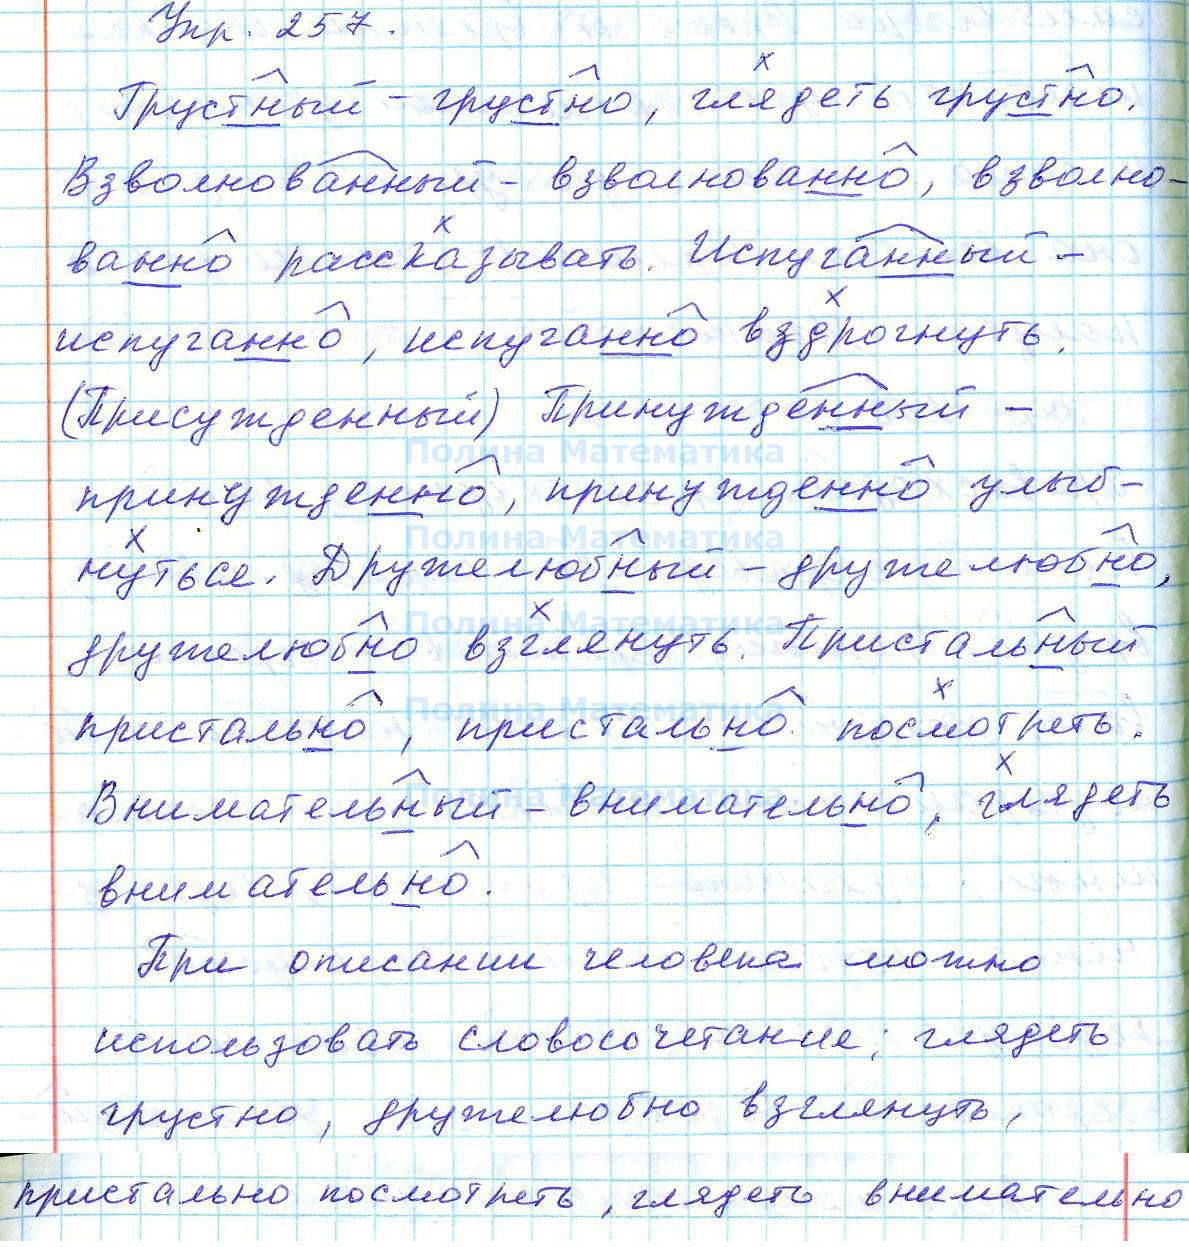 Упр. 257.
Грустный - грустно, глядеть грустно.
Взволнованный - взволнованно, взволно-
ванно рассказывать. Испуганный -
испуганно, испуганно вздрогнуть.
(Присужденный) Принужденный -
Полина Математика
принужденно, принужденно улыб-
Полина Математика
нуться. Дружелюбный - дружелюбно,
Полина Математика
дружелюбно взглянуть. Пристальный
Полина Математика
пристально, пристально посмотреть.
Полина Математика
Внимательный - внимательно, глядеть
внимательно.
При описании человека можно
использовать словосочетание: глядеть
грустно, дружелюбно взглянуть,
пристально посмотреть, глядеть внимательно